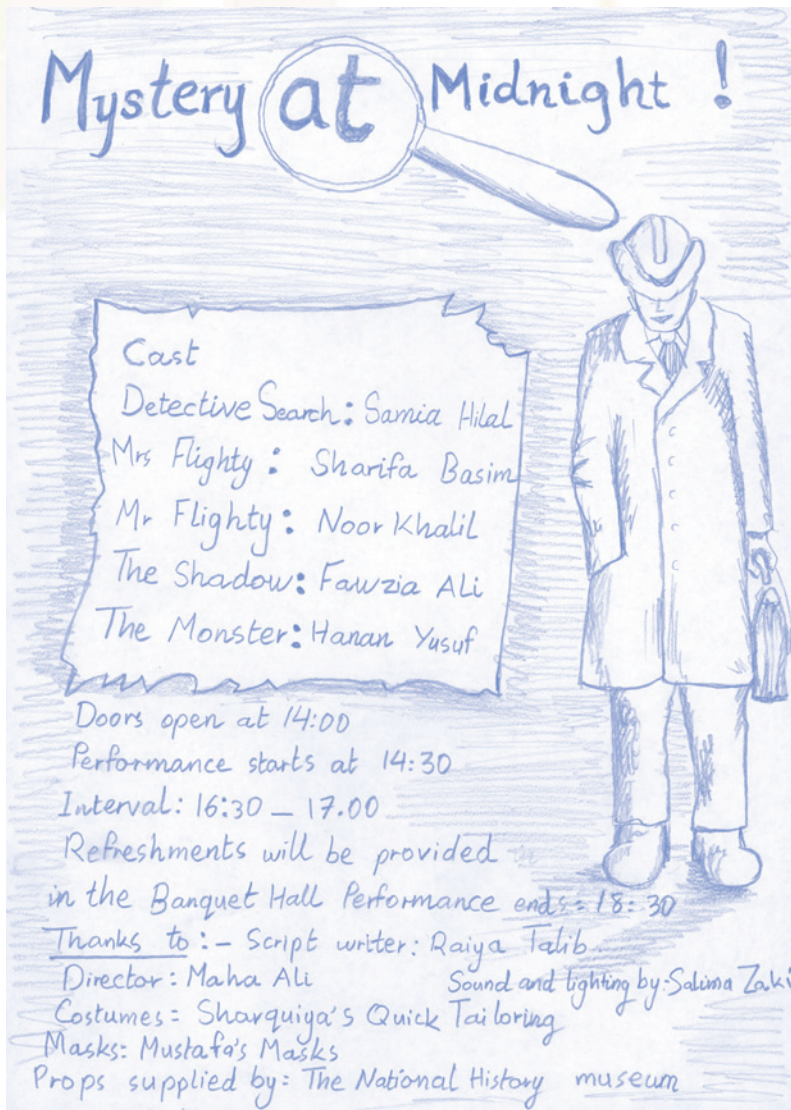 Mystery at Midnight !
Cast
Detective Search: Samia Hilal
Mrs Flighty: Sharifa Basim
Mr Flighty: Noor Khalil
The Shadow: Fawzia Ali
The Monster: Hanan Yusuf
Doors open at 14:00
Performance starts at 14:30
Interval: 16:30 – 17.00
Refreshments will be provided
in the Banquet Hall Performance ends: 18:30
Thanks to:- Script writer: Raiya Talib
Director: Maha Ali Sound and lighting by: Salima Zaki
Costumes: Sharquiya's Quick Tailoring
Masks: Mustafa's Masks
Props supplied by: The National History museum